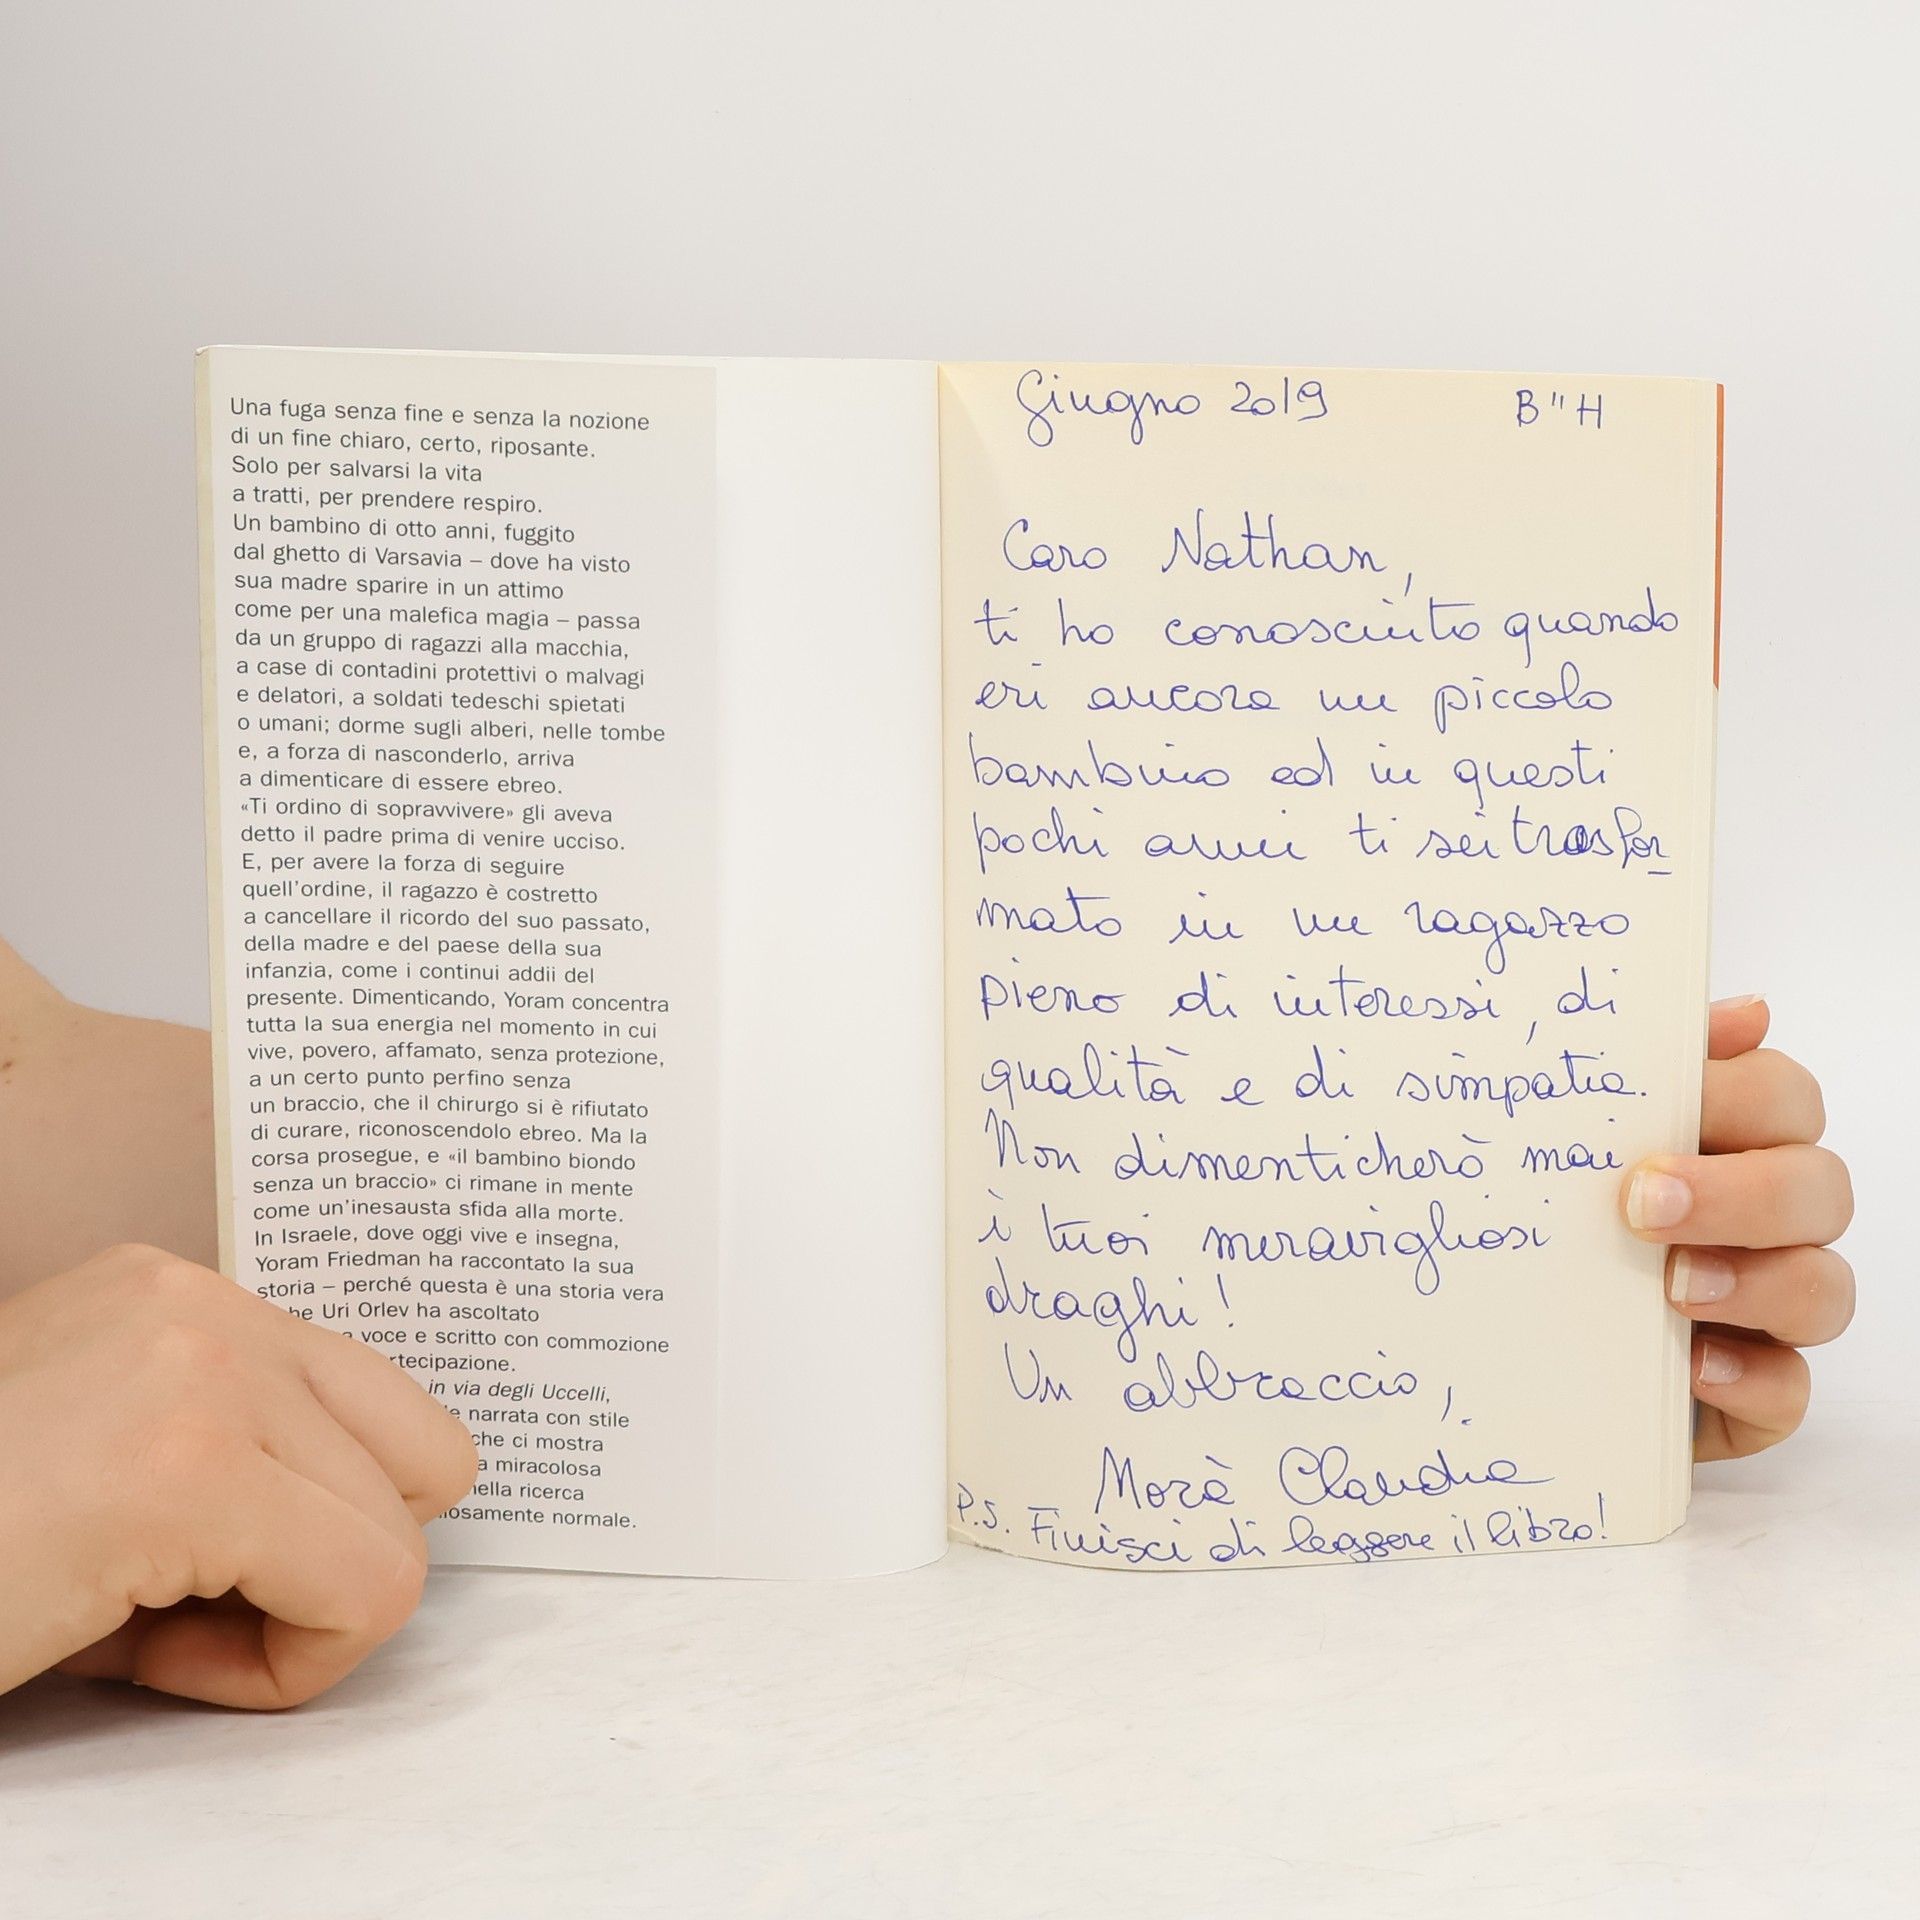 Una fuga senza fine e senza la nozione
di un fine chiaro, certo, riposante.
Solo per salvarsi la vita
a tratti, per prendere respiro.
Un bambino di otto anni, fuggito
dal ghetto di Varsavia – dove ha visto
sua madre sparire in un attimo
come per una malefica magia – passa
da un gruppo di ragazzi alla macchia,
a case di contadini protettivi o malvagi
e delatori, a soldati tedeschi spietati
o umani; dorme sugli alberi, nelle tombe
e, a forza di nasconderlo, arriva
a dimenticare di essere ebreo.
«Ti ordino di sopravvivere» gli aveva
detto il padre prima di venire ucciso.
E, per avere la forza di seguire
quell'ordine, il ragazzo è costretto
a cancellare il ricordo del suo passato,
della madre e del paese della sua
infanzia, come i continui addii del
presente. Dimenticando, Yoram concentra
tutta la sua energia nel momento in cui
vive, povero, affamato, senza protezione,
a un certo punto perfino senza
un braccio, che il chirurgo si è rifiutato
di curare, riconoscendolo ebreo. Ma la
corsa prosegue, e «il bambino biondo
senza un braccio» ci rimane in mente
come un'inesausta sfida alla morte.
In Israele, dove oggi vive e insegna,
Yoram Friedman ha raccontato la sua
storia – perché questa è una storia vera
Uri Orlev ha ascoltato
voce e scritto con commozione
in via degli Uccelli,
narrata con stile
che ci mostra
miracolosa
ricerca
normale.
Giugno 2019 B"H
Caro Nathan,
ti ho conosciuto quando
eri ancora un piccolo
bambino ed in questi
pochi anni ti sei trasfor
mato in un ragazzo
pieno di interessi, di
qualità e di simpatia.
Non dimenticherò mai
i tuoi meravigliosi
draghi!
Un abbraccio,
Morà Claudia
P.S. Finisci di leggere il libro!